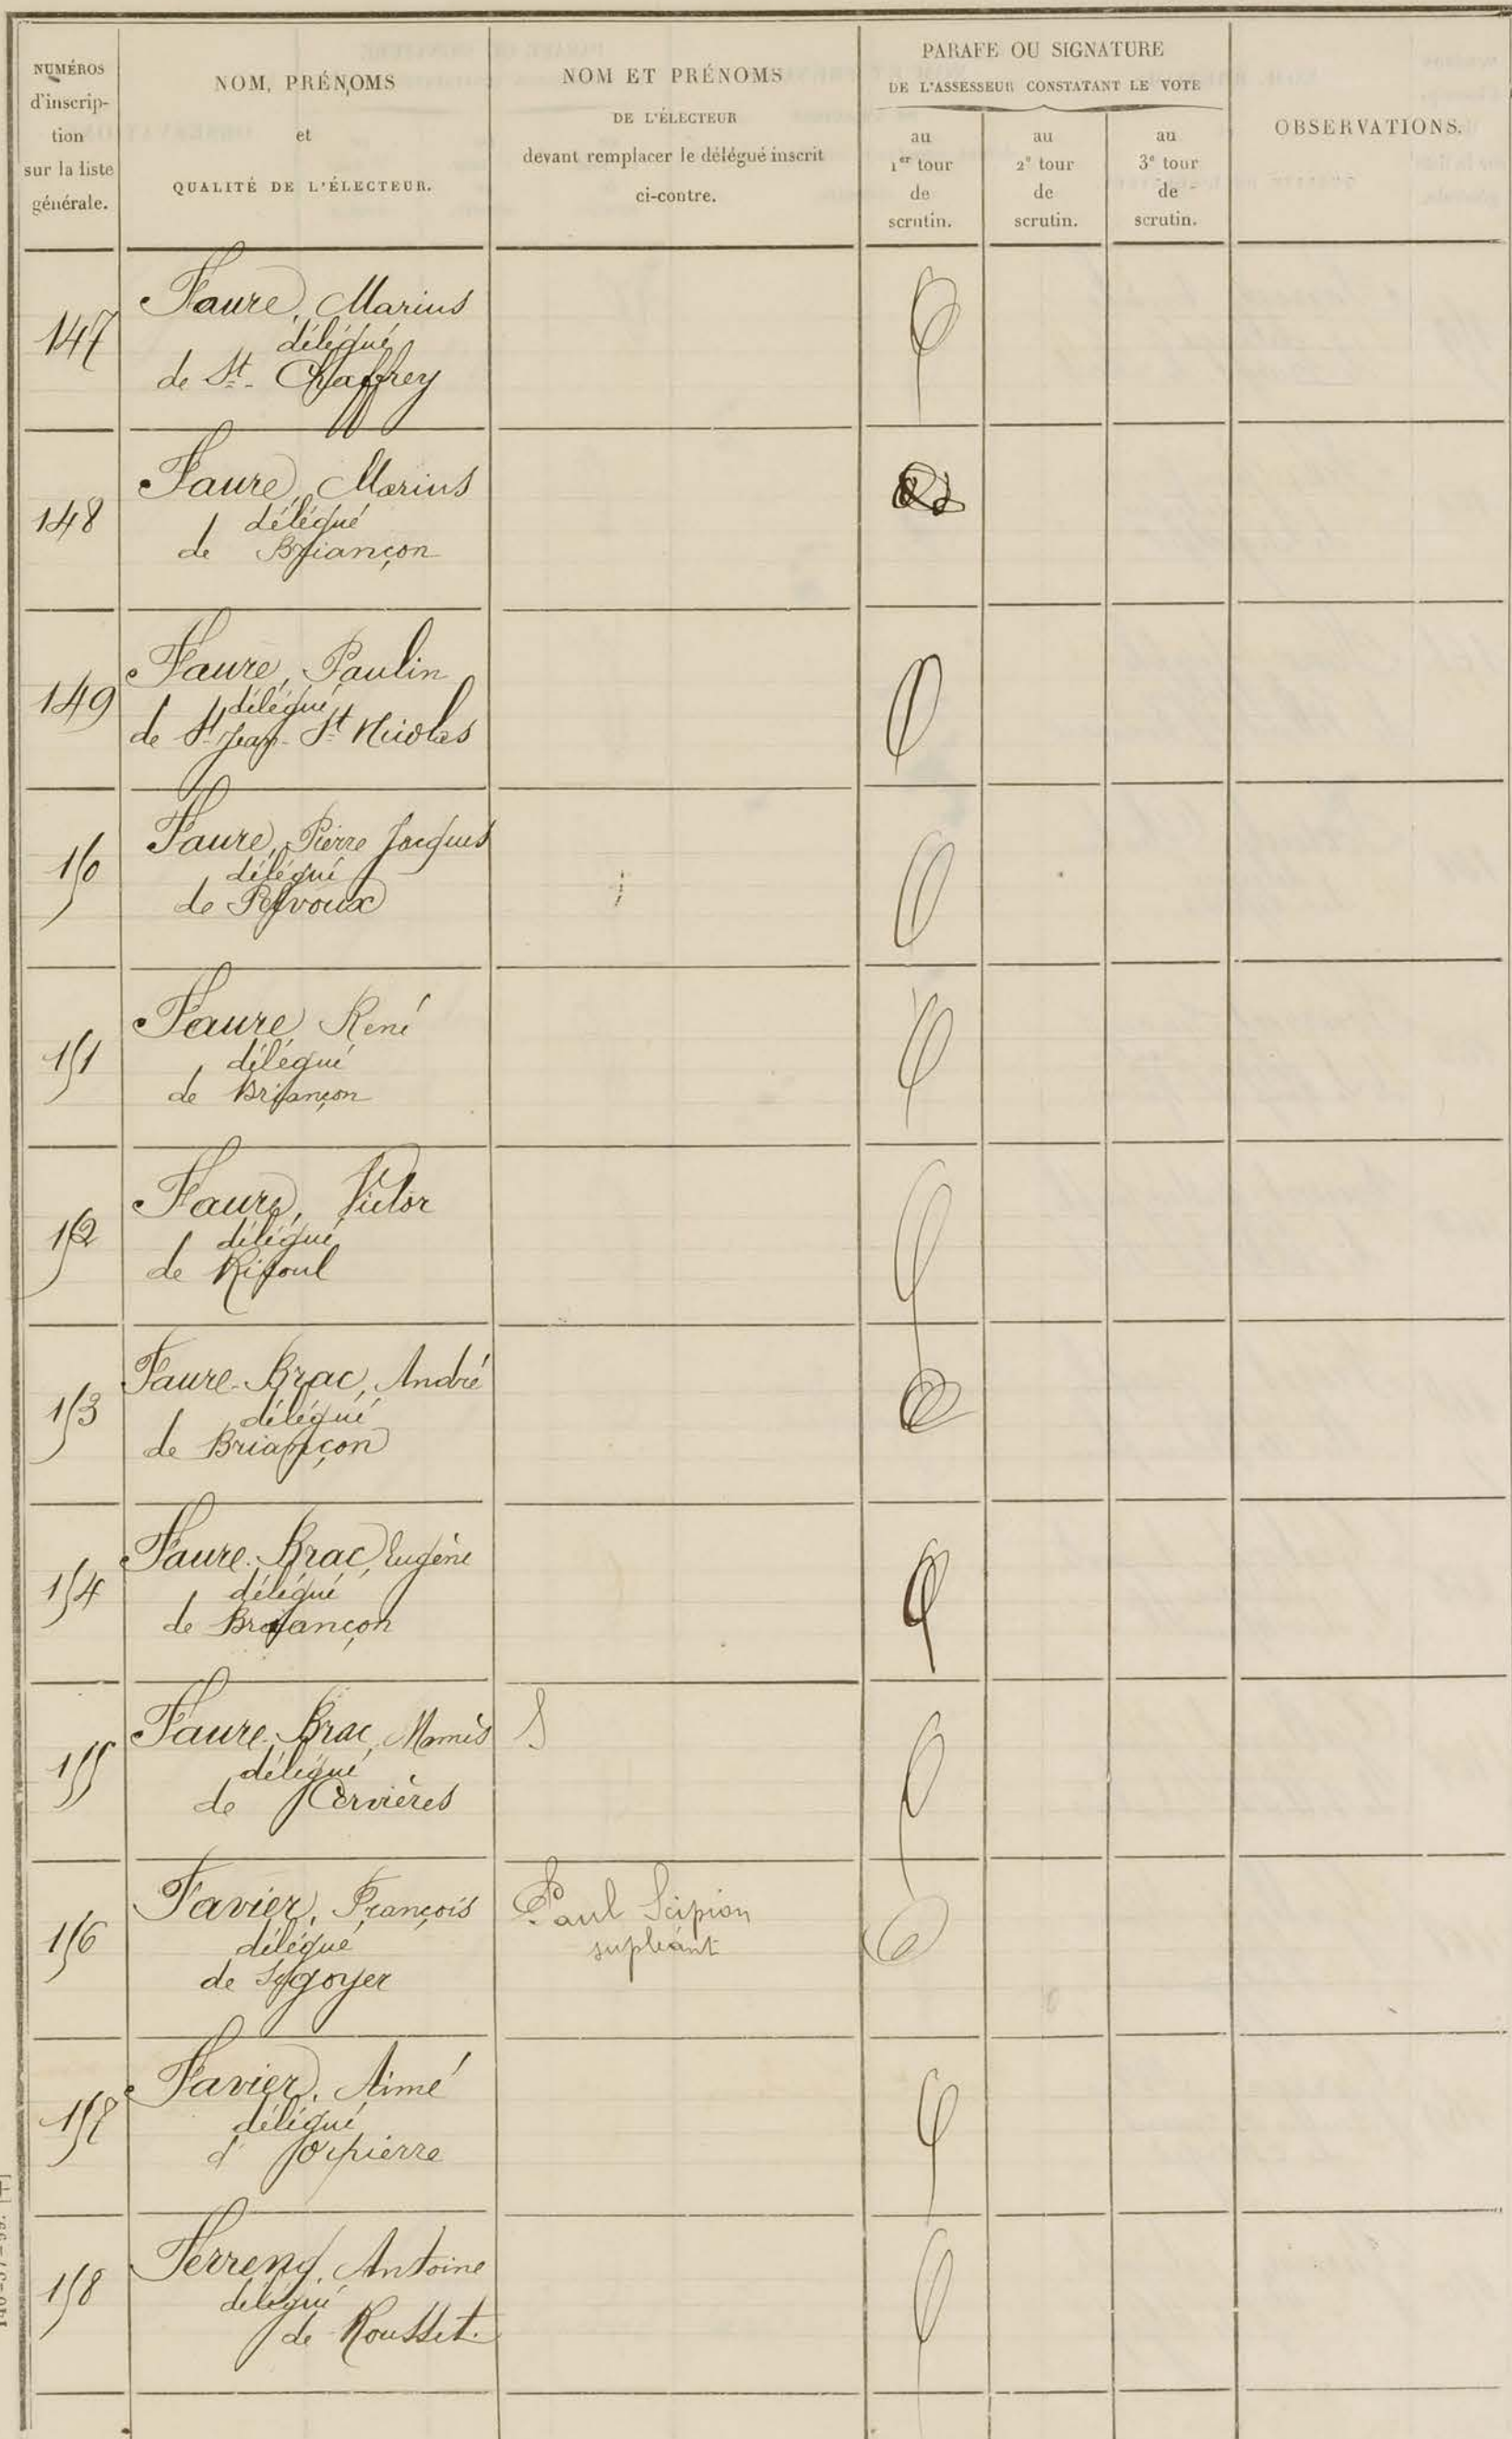 NUMÉROS
d'inscrip-
tion
sur la liste
générale.
NOM, PRÉNOMS
et
QUALITÉ DE L'ÉLECTEUR.
NOM ET PRÉNOMS
DE L'ÉLECTEUR
devant remplacer le délégué inscrit
ci-contre.
PARAFE OU SIGNATURE
DE L'ASSESSEUR CONSTATANT LE VOTE
au
1er tour
de
scrutin.
au
2e tour
de
scrutin.
au
3e tour
de
scrutin.
OBSERVATIONS.
147
Faure, Marius
délégué
de St- Chaffrey
148
Faure, Marius
délégué
de Briançon
149
Faure, Paulin
délégué
de St Jean- St Nicolas
150
Faure, Pierre Jacques
délégué
de Pelvoux
151
Faure René
délégué
de Briançon
152
Faure, Victor
délégué
de Risoul
153
Faure-Brac, André
délégué
de Briançon
154
Faure-Brac, Eugène
délégué
de Briançon
155
Faure-Brac, Mamès
délégué
de Cervières
S
156
Favier, François
délégué
de Sigoyer
Paul Scipion
supléant
157
Favier, Aimé
délégué
d' Orpierre
158
Ferreng, Antoine
délégué
de Rousset.